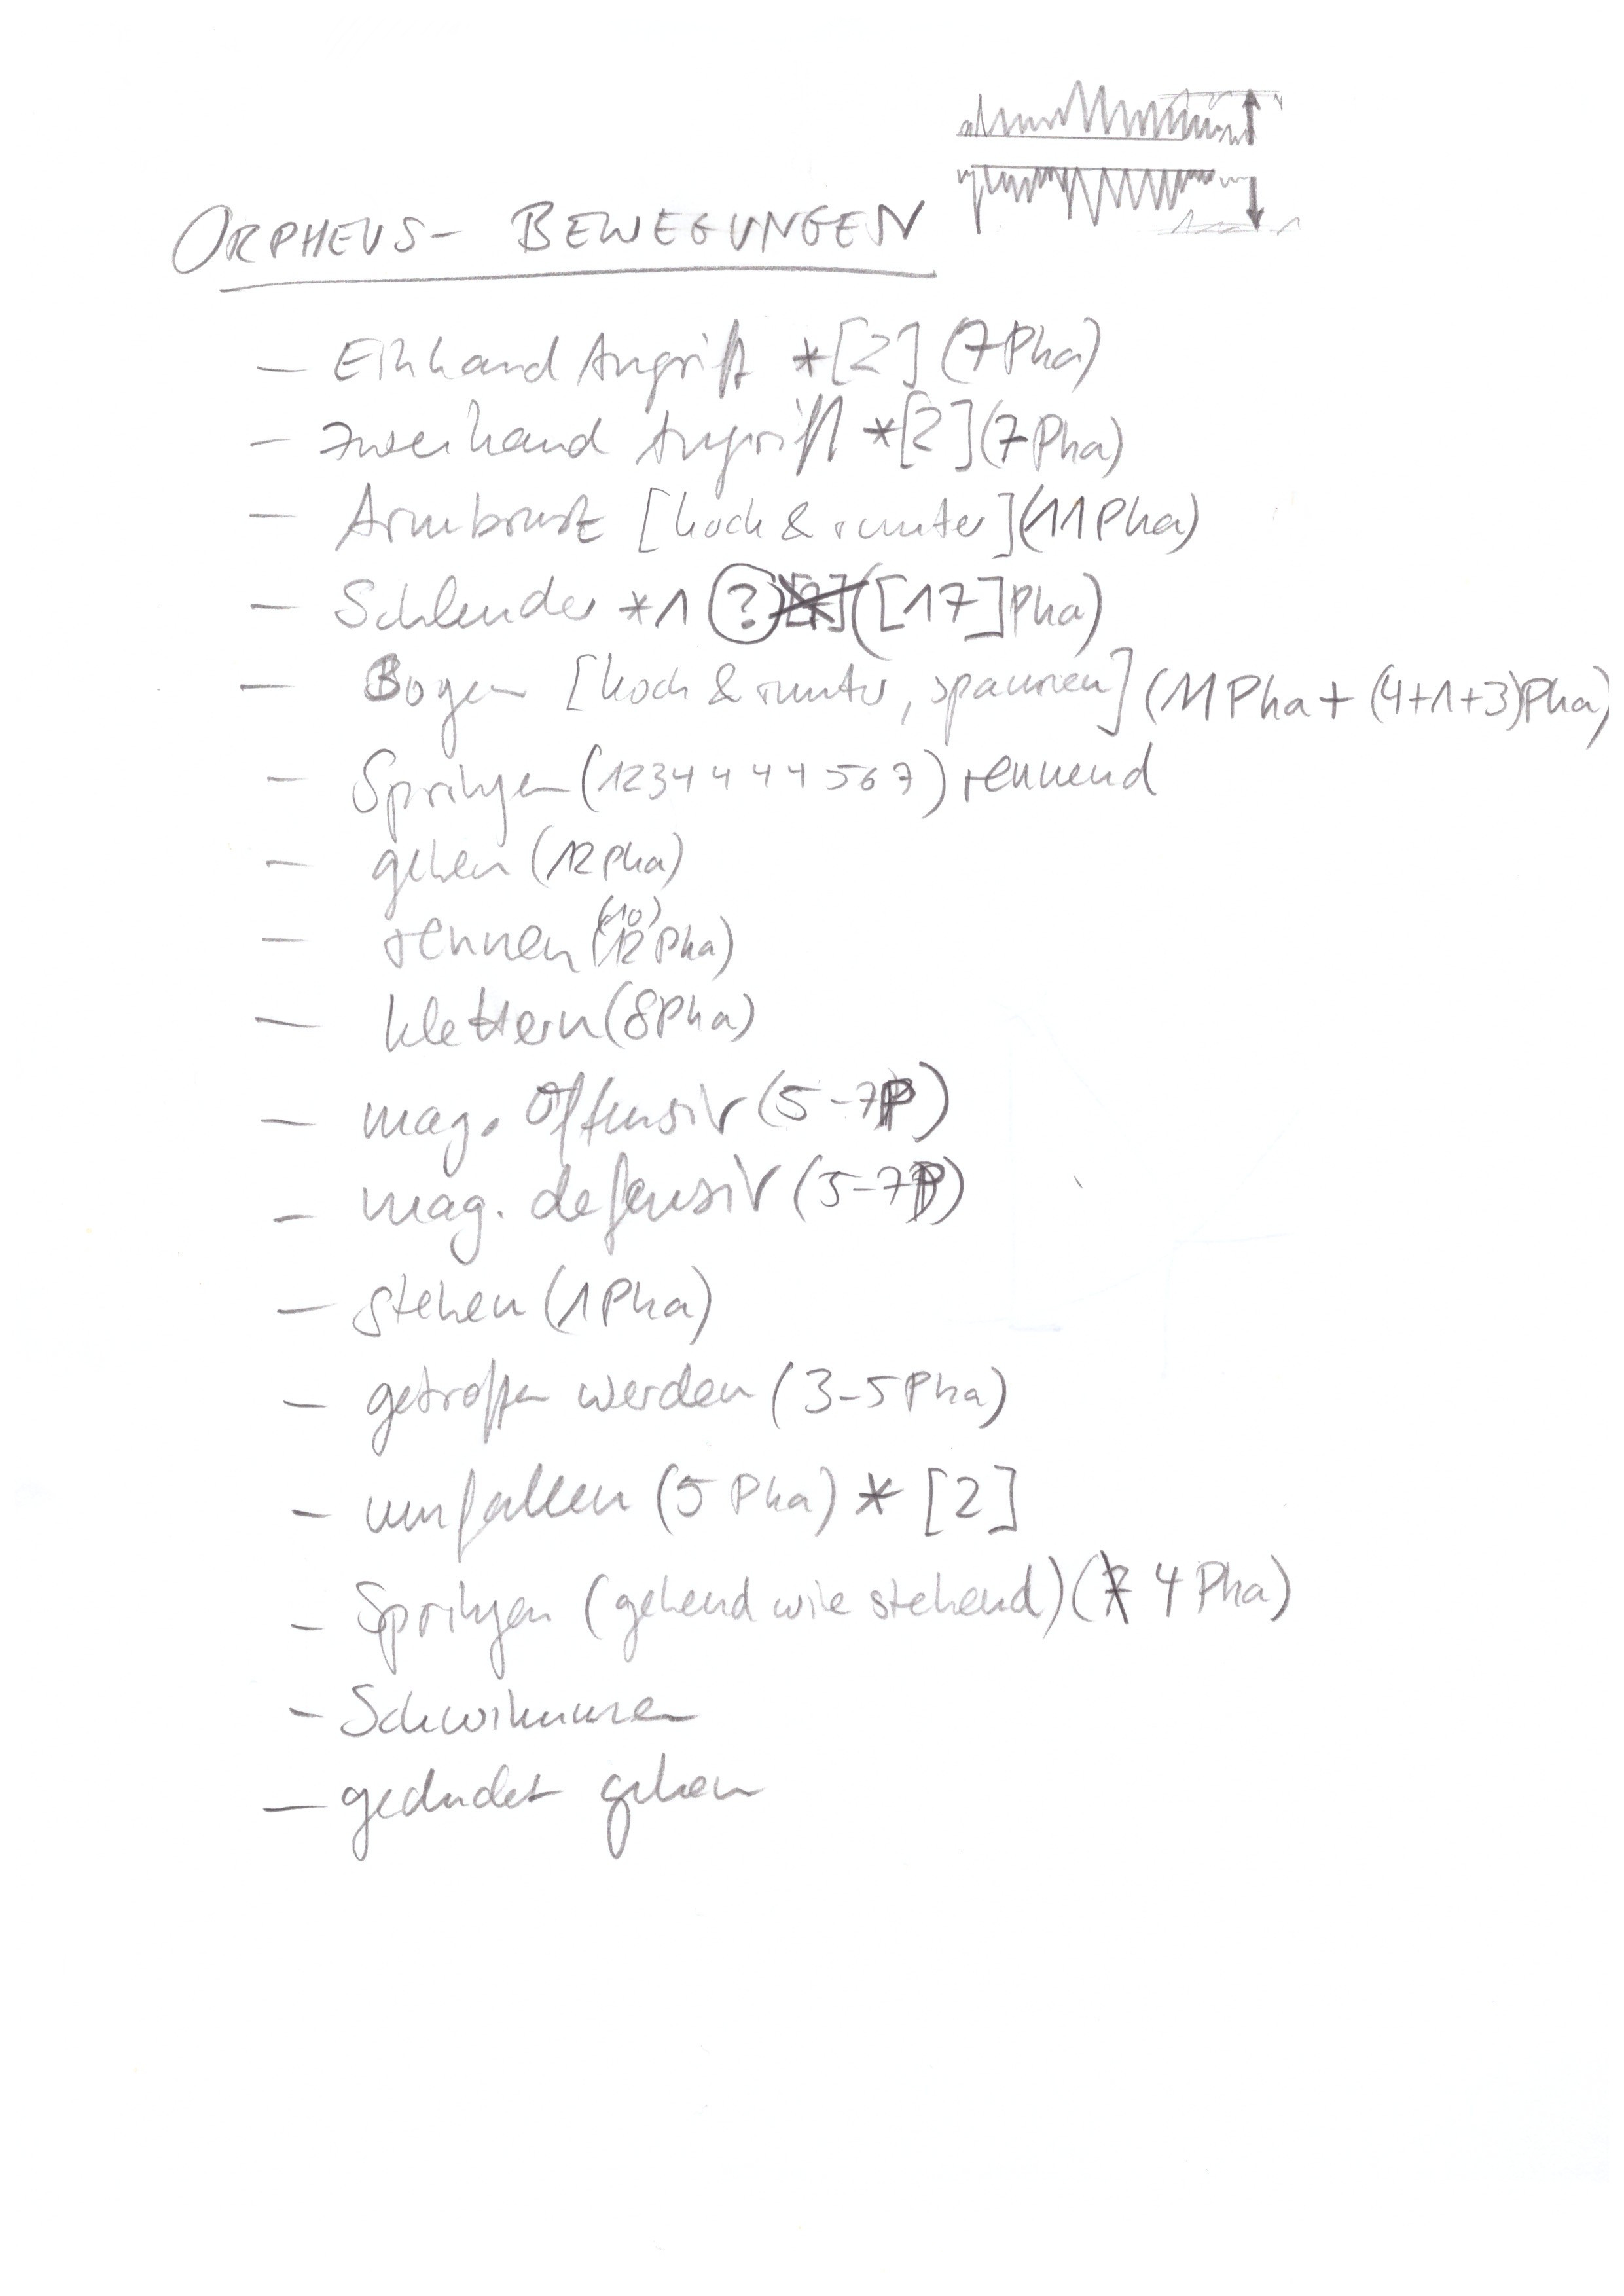 ORPHEUS- BEWEGUNGEN
- Einhand Angriff *[2] (7Pha)
- Zweihand Angriff *[2] (7Pha)
- Armbrust [hoch & runter] (11Pha)
- Schleuder *1 (?) ([17]Pha)
- Bogen [hoch & runter, spannen] (11Pha + (4+1+3)Pha)
- Springen (1234444567) rennend
- gehen (12Pha)
- rennen ((10) 12Pha)
- klettern (8Pha)
- mag. Offensiv (5-7P)
- mag. defensiv (5-7P)
- stehen (1Pha)
- getroffen werden (3-5Pha)
- umfallen (5Pha) * [2]
- Springen (gehend wie stehend) (4 Pha)
- Schwimmen
- geduckt gehen